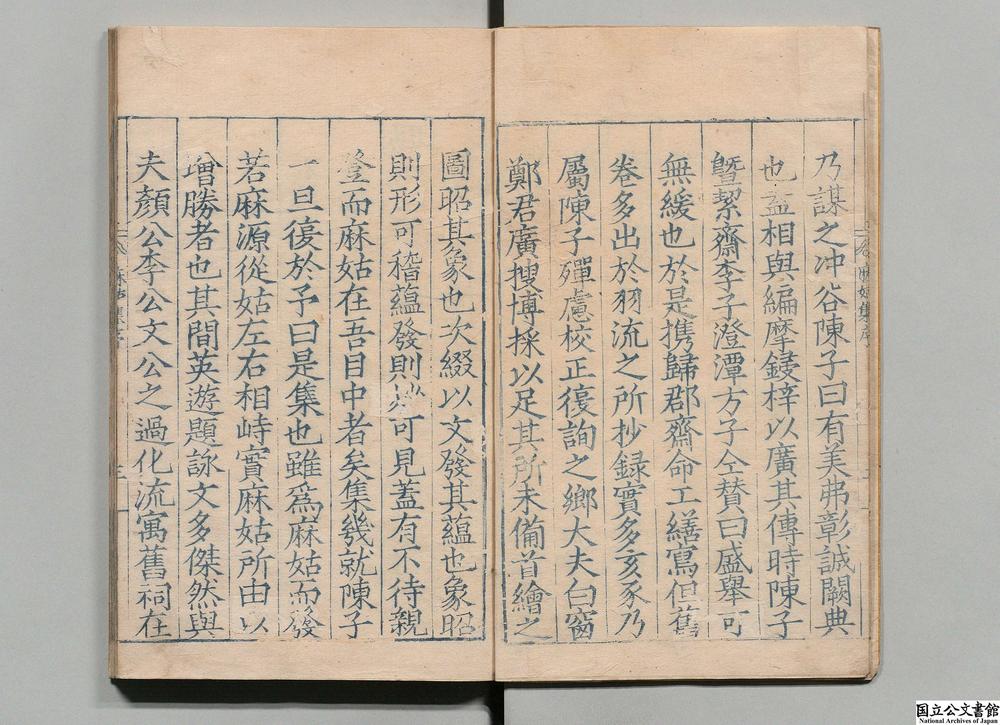 乃謀之冲谷陳子曰有美弗彰誠闕典
也盍相與編摩鋟梓以廣其傳時陳子
暨絜齋李子澄潭方子仝賛曰盛舉可
無緩也於是携歸郡齋命工繕寫但舊
卷多出於羽流之所抄録實多亥豕乃
屬陳子殫慮校正復詢之鄉大夫白窗
鄭君廣搜博採以足其所未備首繪之
圖昭其象也次綴以文發其蘊也象昭
則形可稽蘊發則妙可見蓋有不待親
登而麻姑在吾目中者矣集幾就陳子
一旦復於予曰是集也雖爲麻姑而發
若麻源從姑左右相峙實麻姑所由以
增勝者也其間英遊題詠文多傑然與
夫顏公李公文公之過化流寓舊祠在
麻姑集序
国立公文書館
National Archives of Japan